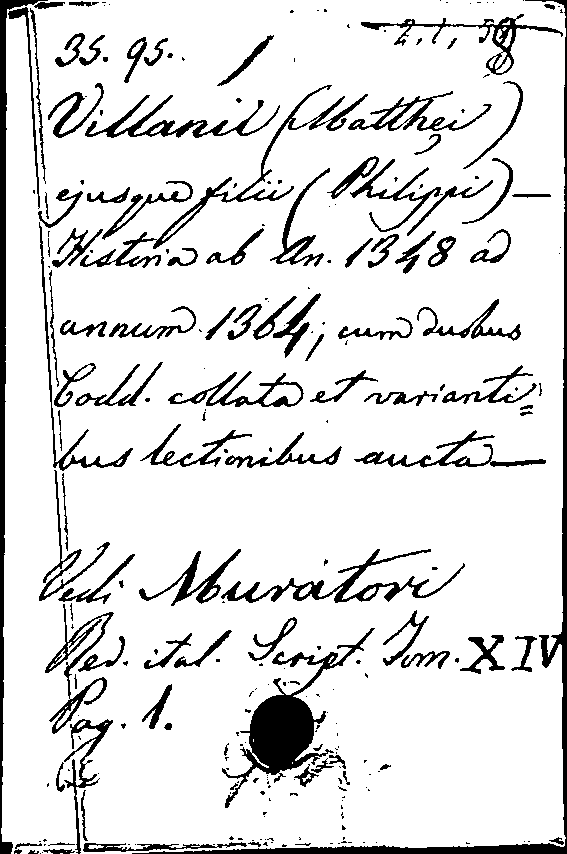 35. 95.
Villanii (Matthei)
ejusque filii (Philippi) —
Historia ab An. 1348 ad
annum 1364; cum duobus
Codd. collata et varianti=
bus lectionibus aucta —
Vedi Muratori
Rer. ital. Script. Tom. XIV
Pag. 1.